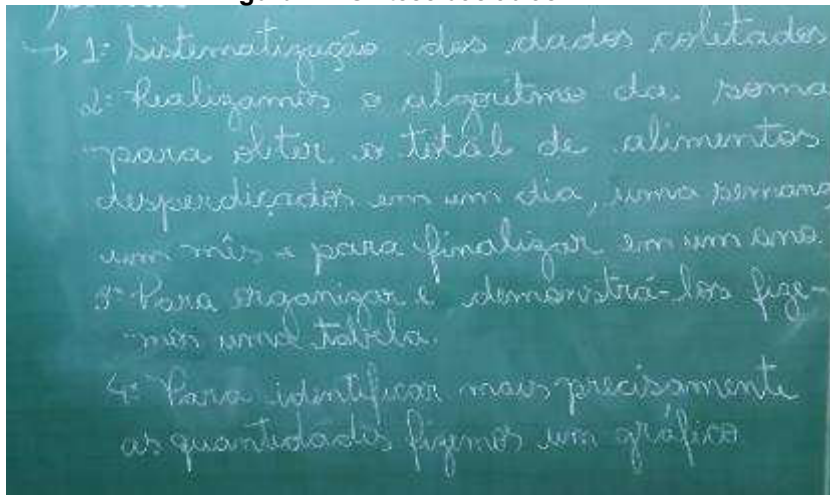 → 1º Sistematização dos dados coletados
2º Realizamos o algoritmo da soma
para obter o total de alimentos
desperdiçados em um dia, uma semana
um mês e para finalizar em um ano.
3º Para organizar e demonstrá-los fize-
mos uma tabela.
4º Para identificar mais precisamente
as quantidades fizemos um gráfico